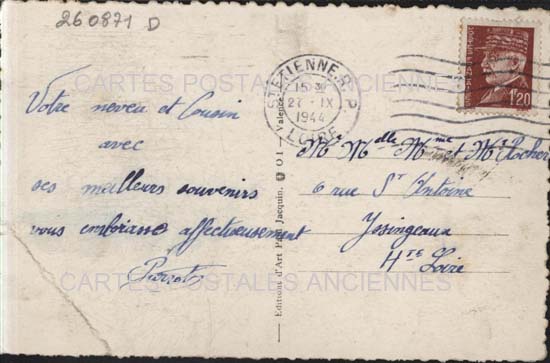 260871 D
CARTES POSTALES ANCIENNES
Votre neveu et Cousin
avec
ses meilleurs souvenirs
vous embrasse affectueusement
ST ETIENNE R. P.
15 H
27 - IX
1944
LOIRE
1F20
Mr Melle Mme et Mr
6 rue St Antoine
Yssingeaux
Hte Loire
Editions d'Art Paul Jacquin,
Valence
CARTES POSTALES ANCIENNES